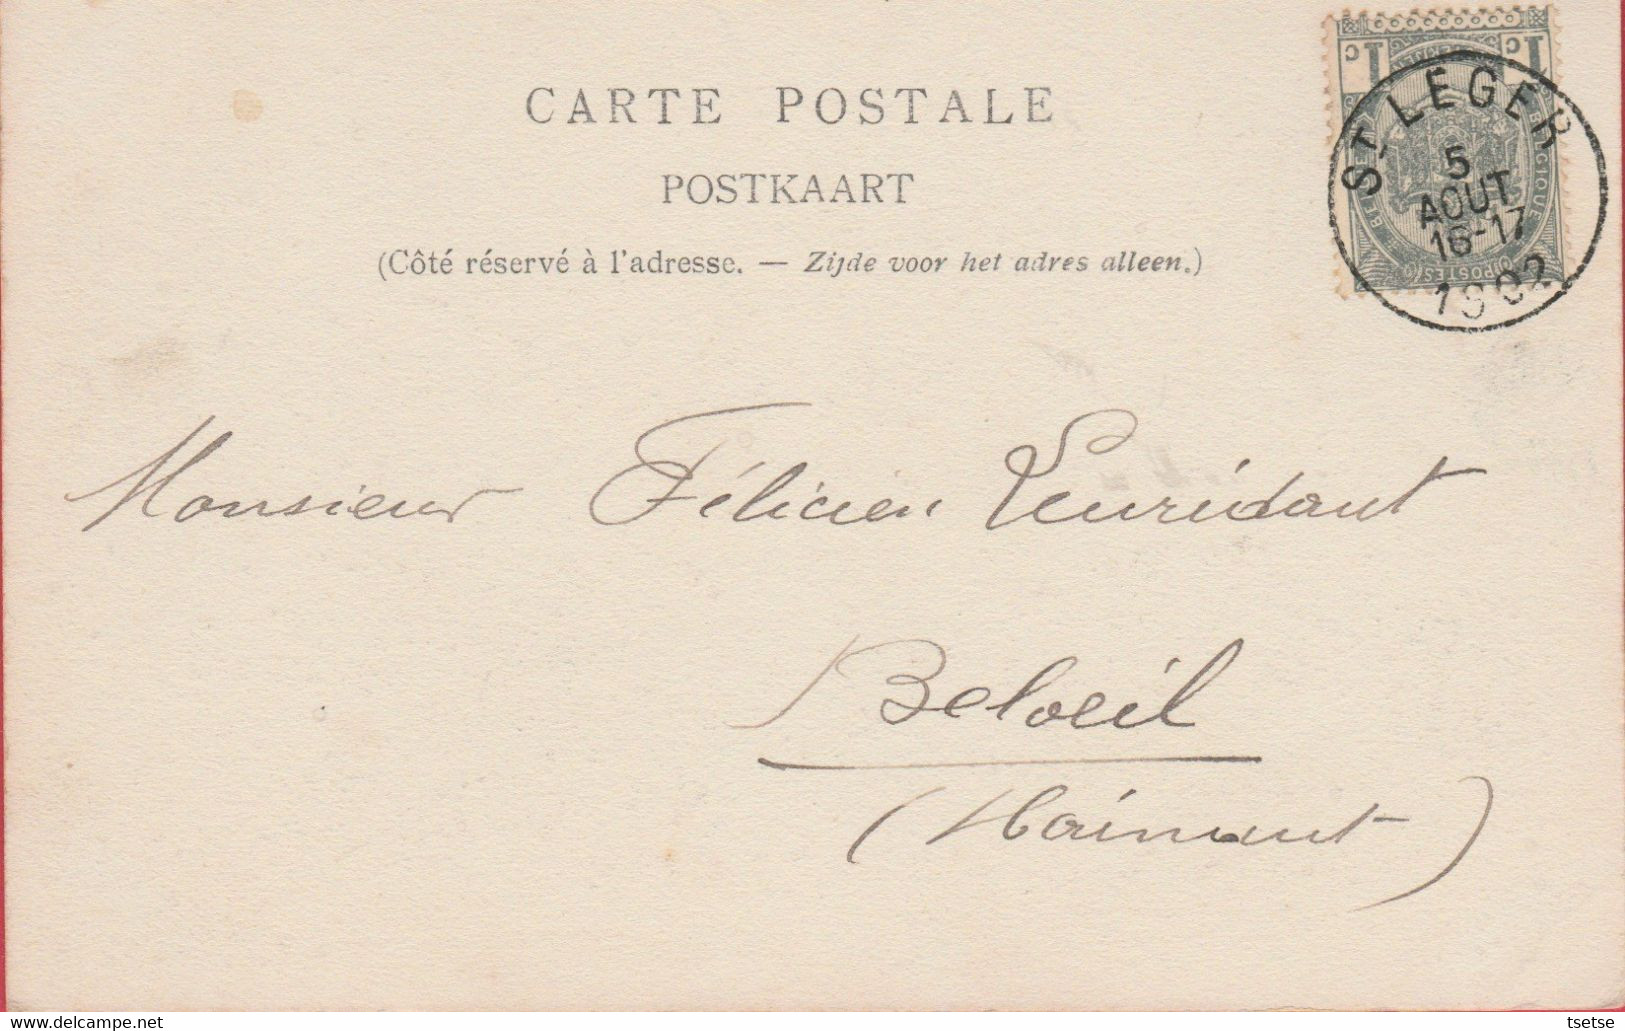 CARTE POSTALE
POSTKAART
(Côté réservé à l'adresse. — Zijde voor het adres alleen.)
1c 1c
BELGIQUE
POSTES
ST LEGER
5
AOUT
16-17
1902
Monsieur Félicien Leuridant
Beloeil
(Hainaut)
tsetse